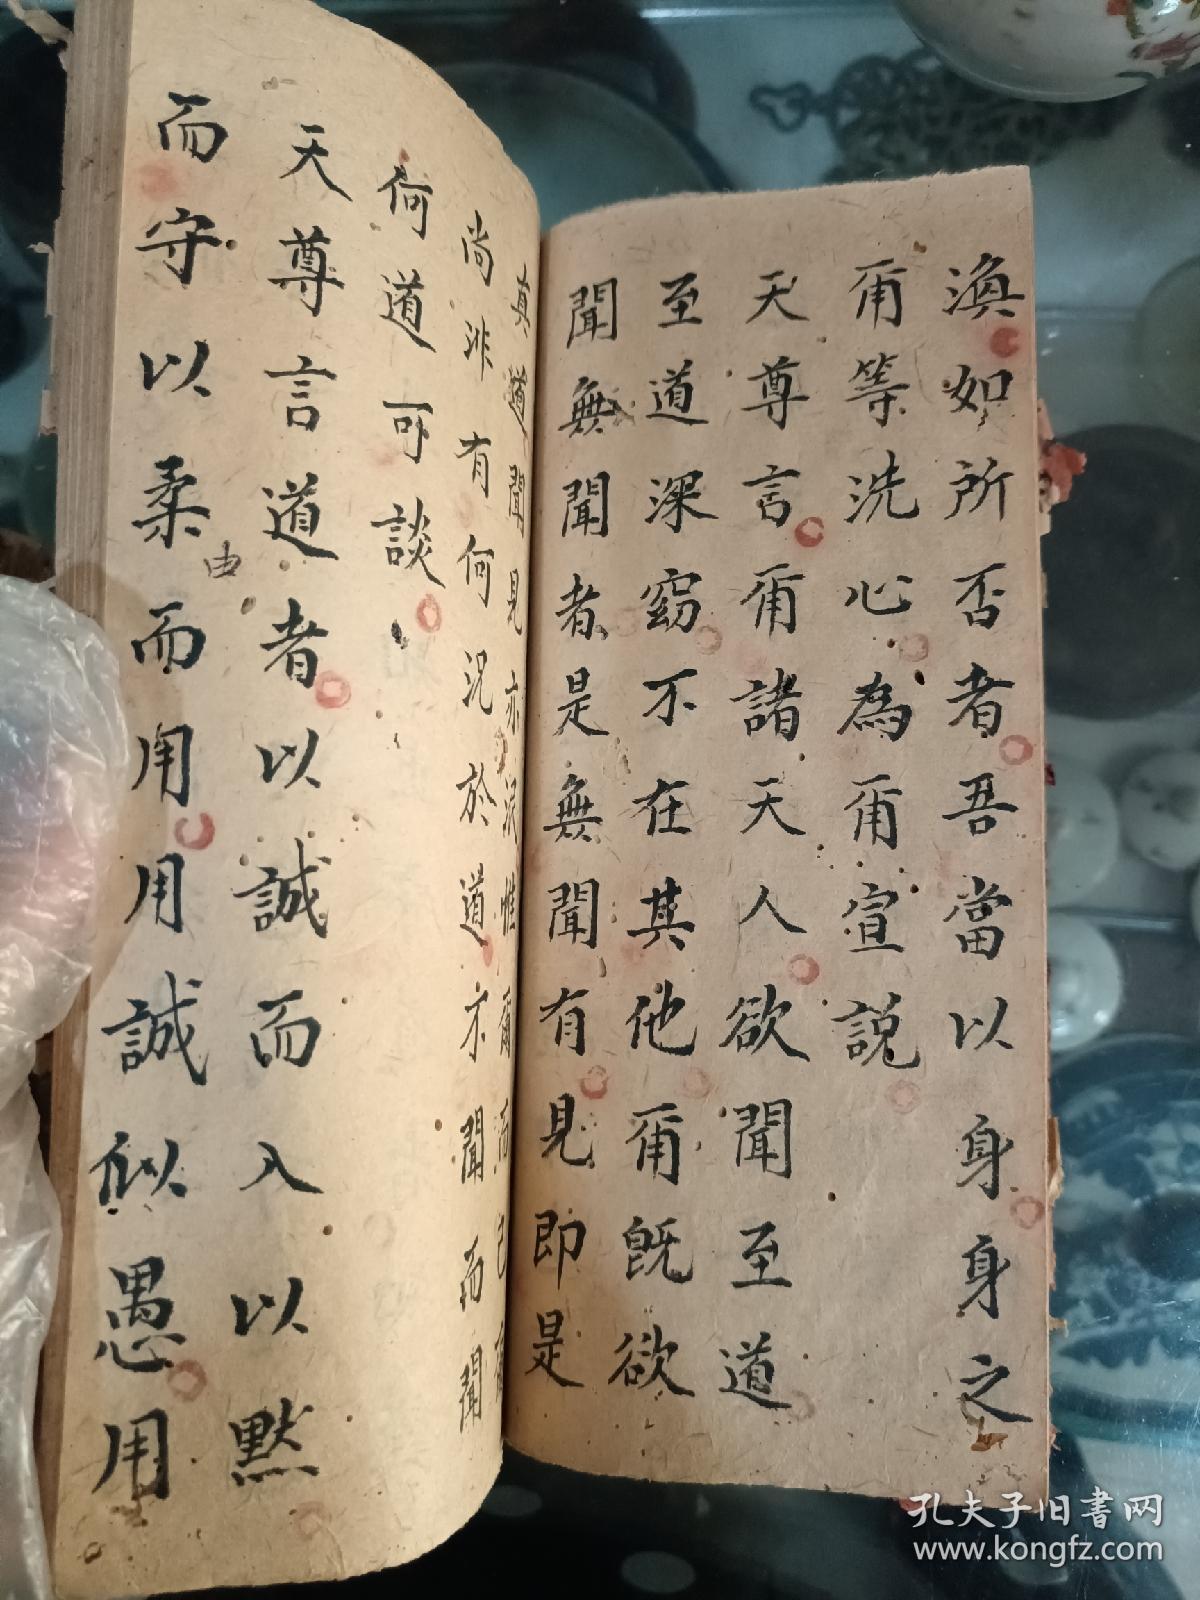 渙如所否者吾當以身身之
甭等洗心為甭宣説
天尊言甭諸天人欲聞至道
至道深窈不在其他甭既欲
聞無聞者是無聞有見即是
真道聞見亦泯惟爾
尚非有何況於道不聞而聞
何道可談
天尊言道者以誠而入以默
而守以柔而用用誠似愚用
由
孔夫子旧書网
www.kongfz.com